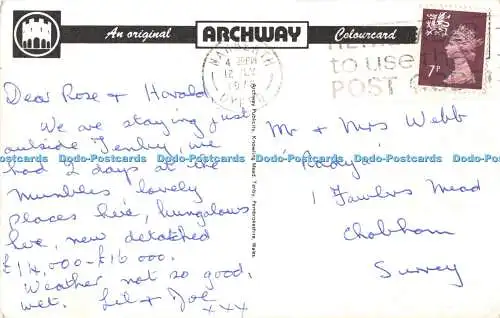 An original ARCHWAY Colourcard
NARBERTH
4 30PM
12 JLY
to use
POST
7P
Dear Rose & Harold
We are staying just
outside Tenby, we
had 2 days at the
Mumbles lovely
places here, bungalows
here, new detached
£14,000 - £16 000.
Weather not so good,
wet. Lil & Joe
xxx
Archway Publicity, Knowling Mead, Tenby, Pembrokeshire, Wales.
Mr & Mrs Webb
1 Fowlers Mead
Chobham
Surrey
Dodo-Postcards Dodo-Postcards Dodo-Postcards Dodo-Postcards Dodo-Postcards Dodo-Postcards